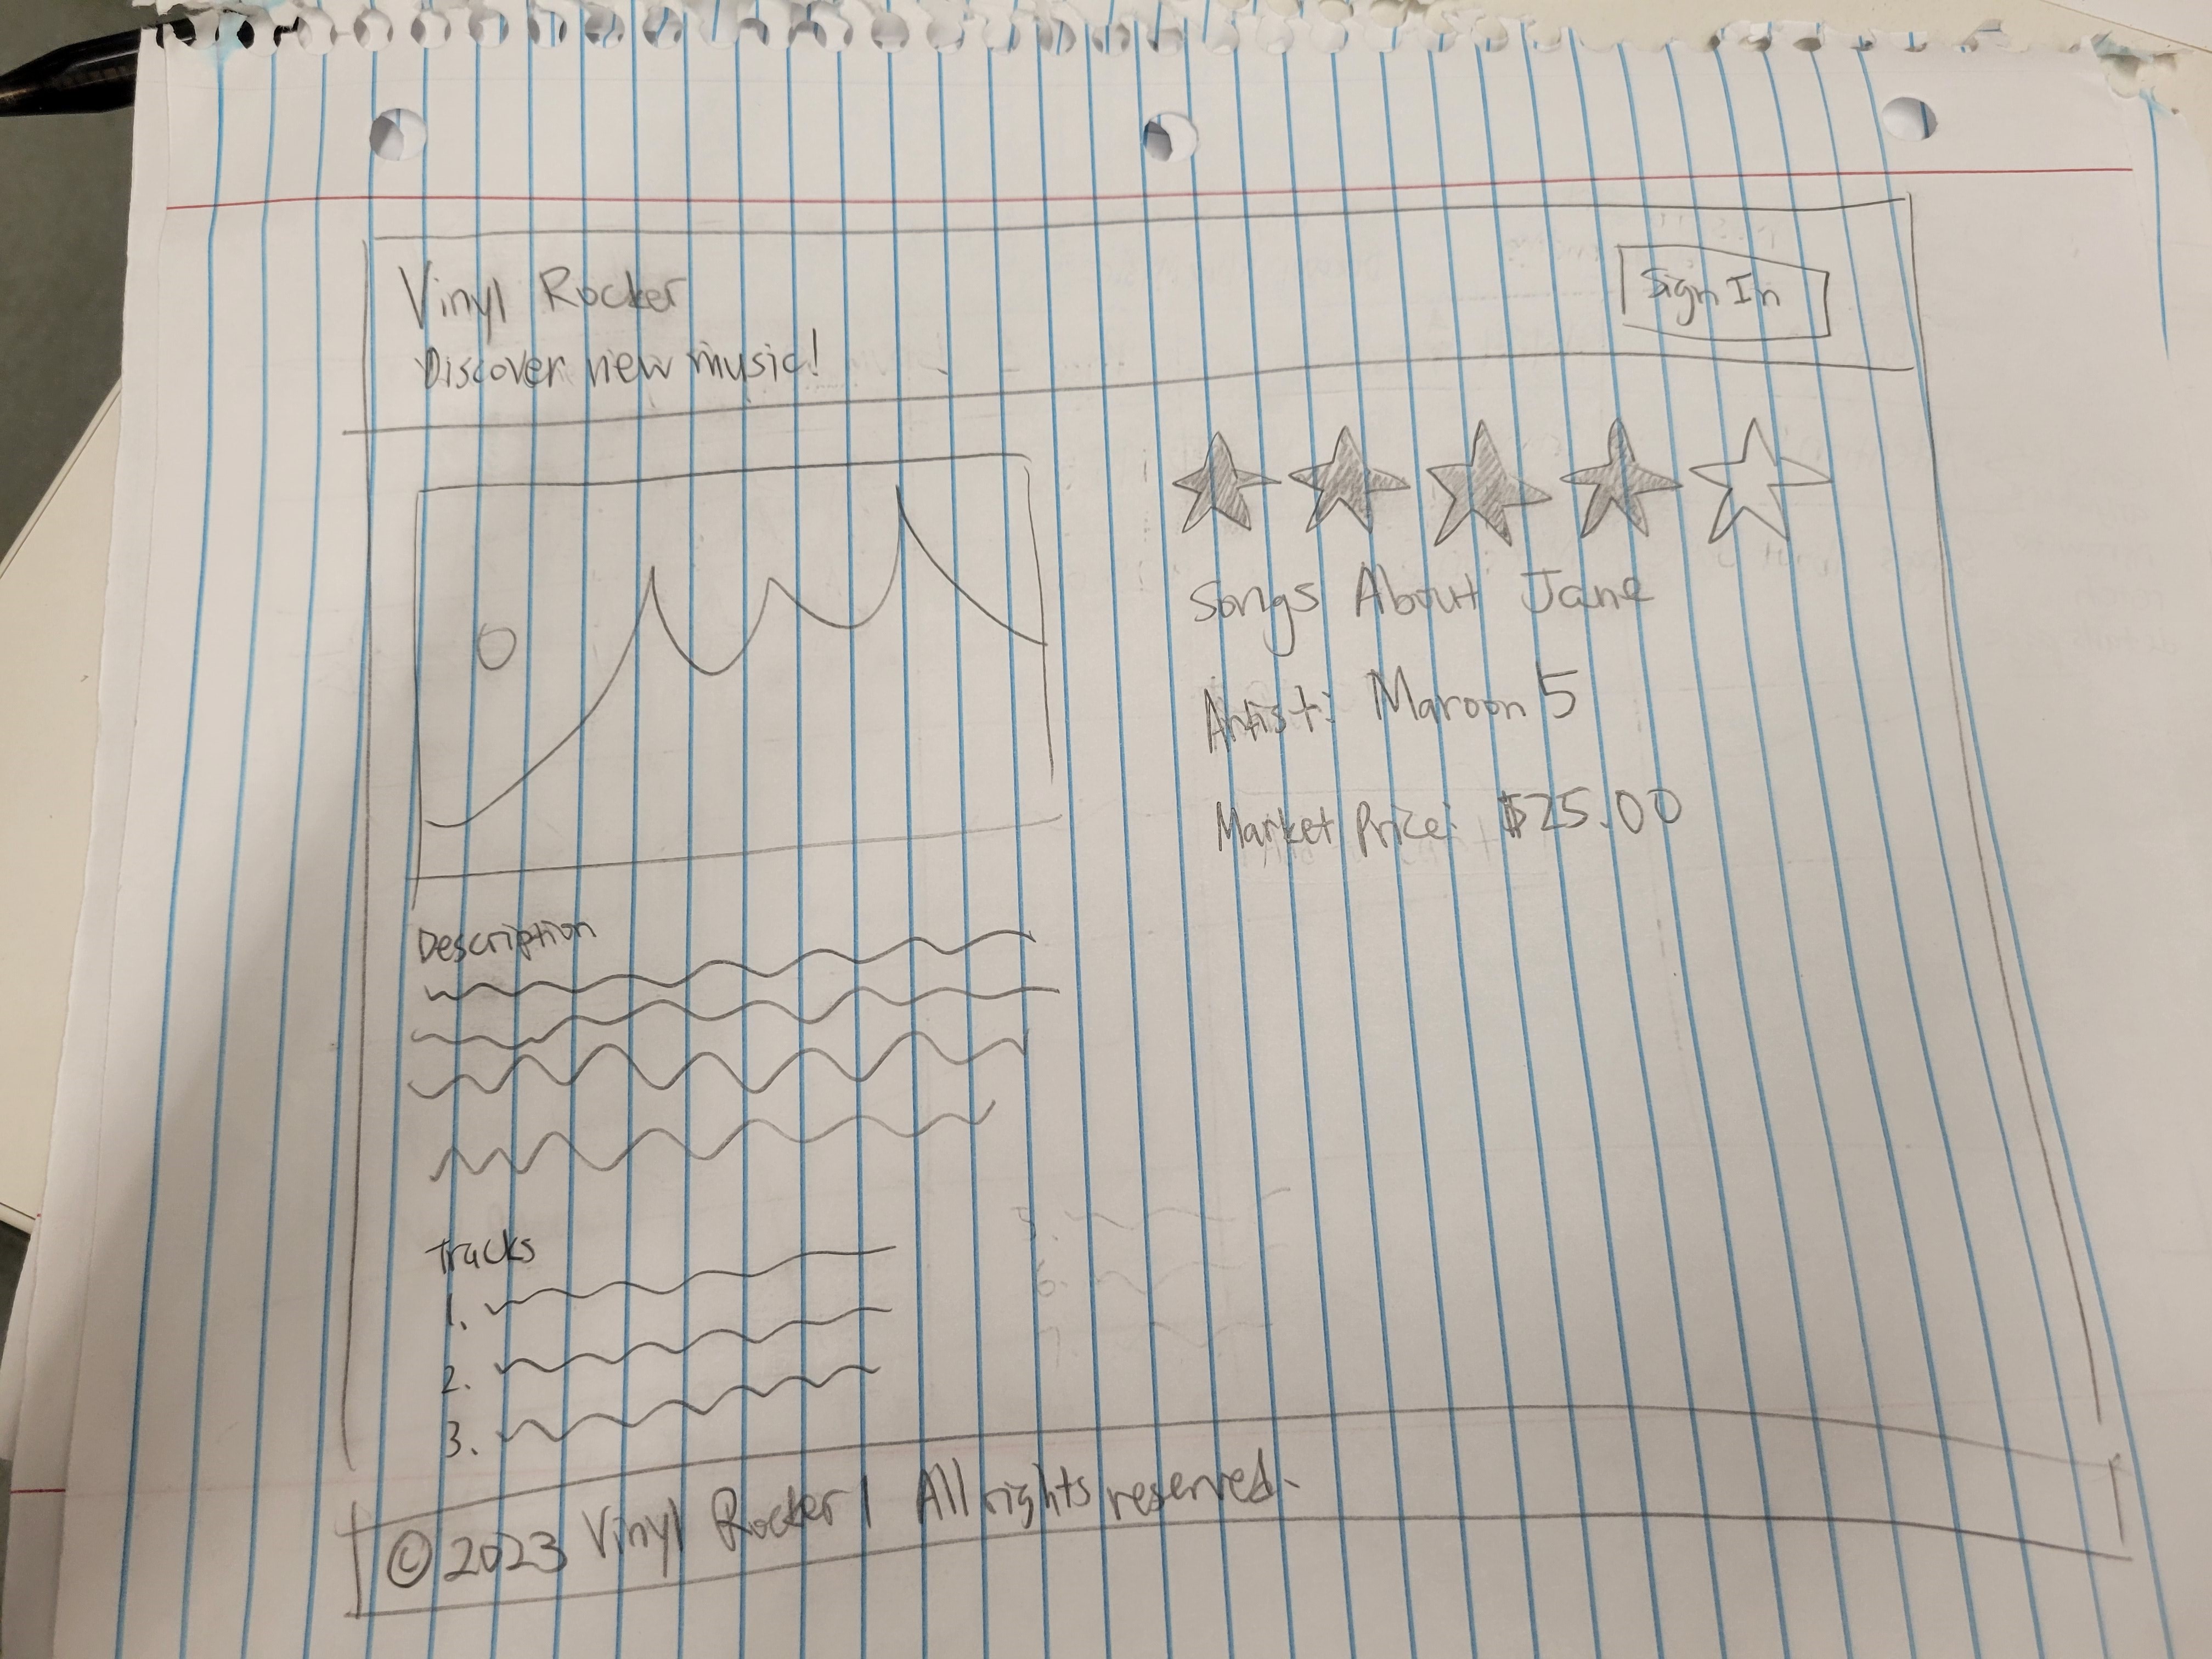 Vinyl Rocker
Sign In
Discover new music!
Songs About Jane
Artist: Maroon 5
Market Price: $25.00
Description
Tracks
1.
2.
3.
5.
6.
7.
© 2023 Vinyl Rocker | All rights reserved.